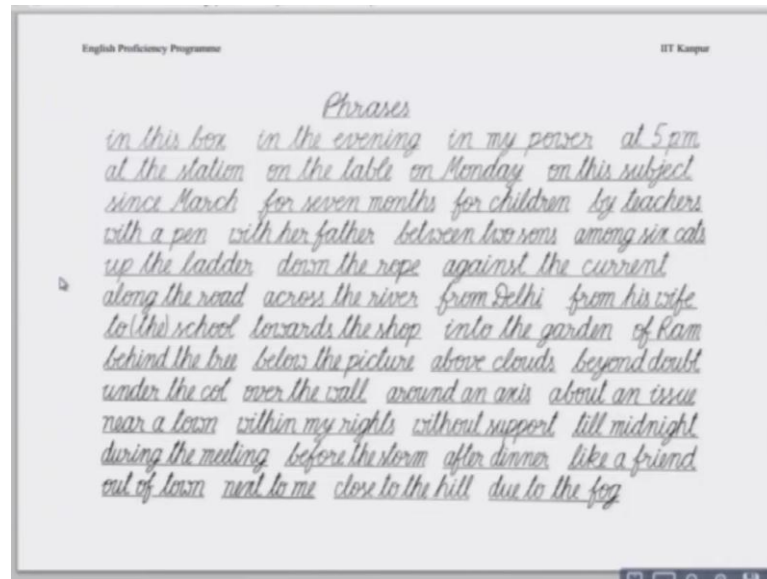 English Proficiency Programme IIT Kanpur
Phrases
in this box in the evening in my power at 5 pm
at the station on the table on Monday on this subject
since March for seven months for children by teachers
with a pen with her father between two sons among six cats
up the ladder down the rope against the current
along the road across the river from Delhi from his wife
to (the) school towards the shop into the garden of Ram
behind the tree below the picture above clouds beyond doubt
under the cot over the wall around an axis about an issue
near a town within my rights without support till midnight
during the meeting before the storm after dinner like a friend
out of town next to me close to the hill due to the fog